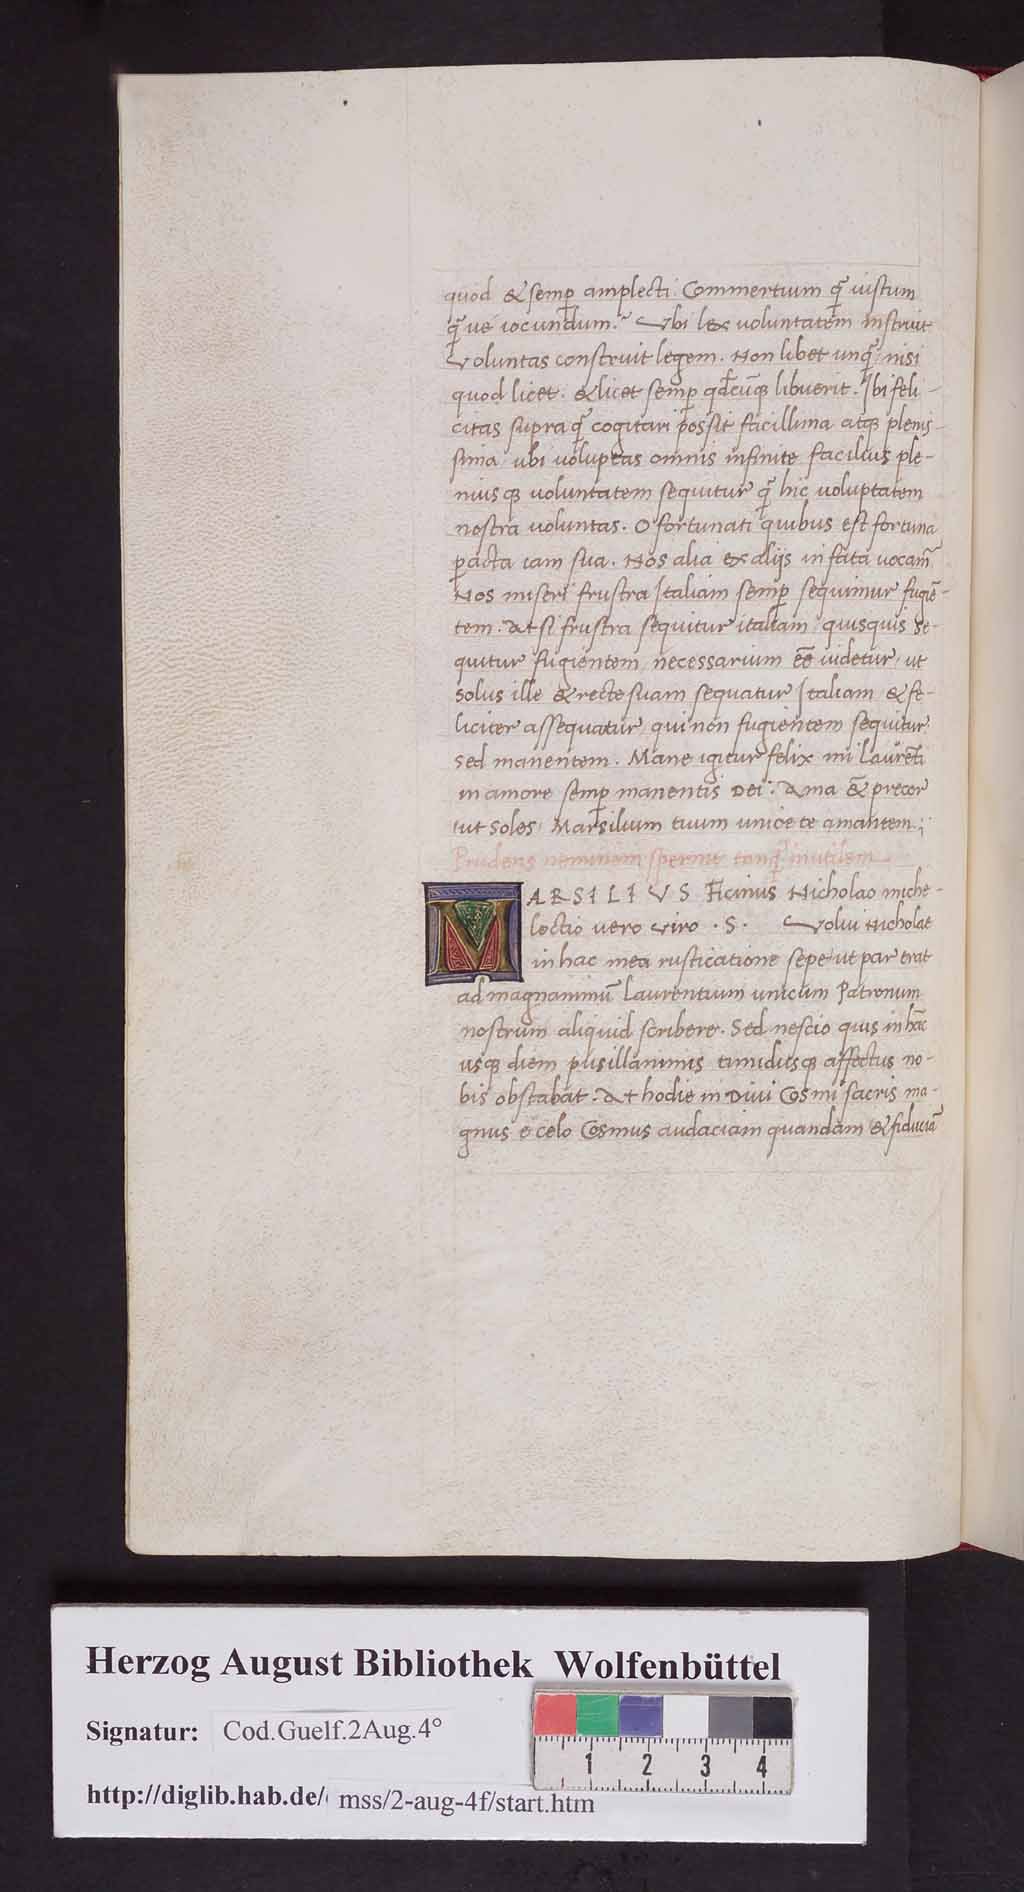 quod & semꝑ amplecti. Commertium qꝫ̃ iustum
qꝫ̃ue iocundum? Vbi lex voluntatem instruit
Voluntas construit legem. Non libet unqꝫ̃ nisi
quod licet. & licet semꝑ qd̄cūqꝫ libuerit. Ibi feli-
citas supra qꝫ̃ cogitari possit facillima atqꝫ plenis-
sima. ubi uoluptas omnis infinite facilius ple-
niusqꝫ voluntatem sequitur qꝫ̃ hic voluptatem
nostra voluntas. O fortunati quibus est fortuna
ꝑacta iam sua. Nos alia ex alijs in fata uocam̃
Nos miseri frustra Italiam semꝑ sequimur fugiē-
tem. At si frustra sequitur italiam quisquis se-
quitur fugientem, necessarium eē uidetur, ut
solus ille & recte suam sequatur Italiam & fe-
liciter assequatur qui non fugientem sequitur
sed manentem. Mane igitur felix mi Laurēti
in amore semꝑ manentis Dei. Ama & precor
ut soles Marsilium tuum unice te amantem;
Prudens neminem spernit tanqꝫ̃ inutilem
MARSILIVS Ficinus Nicholao miche-
loctio uero viro . S . Volui Nicholae
in hac mea rusticatione sepe ut par erat
ad magnanimū Laurentium unicum Patronum
nostrum aliquid scribere. Sed nescio quis in hāc
usqꝫ diem pusillanimis timidusqꝫ affectus no-
bis obstabat. At hodie in Diui Cosmi sacris ma-
gnus e celo Cosmus audaciam quandam & fiduciā
Herzog August Bibliothek Wolfenbüttel
Signatur: Cod.Guelf.2Aug.4°
http://diglib.hab.de/ mss/2-aug-4f/start.htm
1 2 3 4